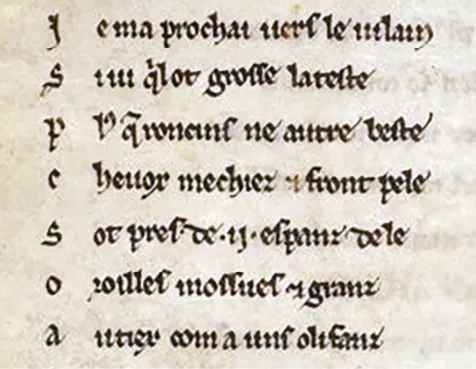 J e ma prochai uers le uilain
S i ui q̃l ot grosse lateste
P lꝰ q̃ roncins ne autre beste
C heuox mechiez ⁊ front pele
S ot pres de ·ij· espanz de le
O roilles mossues ⁊ granz
A utiex com a uns olifanz